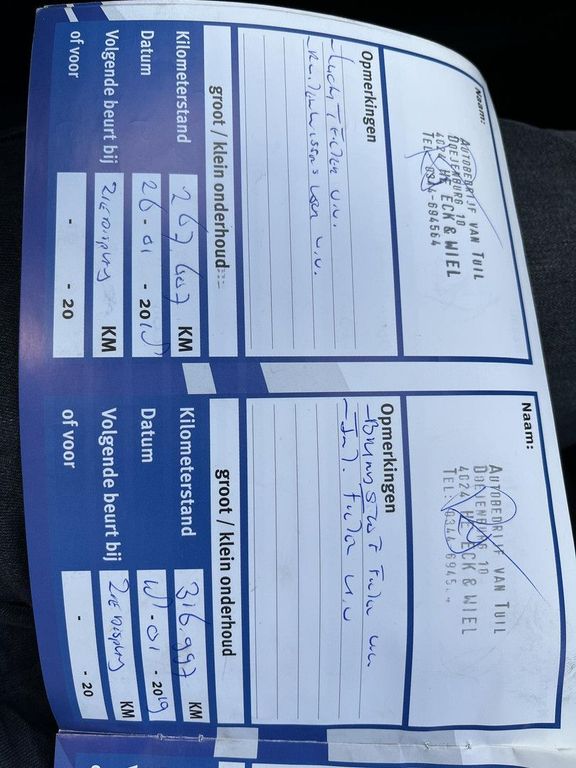 Naam:
AUTOBEDRIJF VAN TUIL
DOEJENBURG 10
4024 HE ECK & WIEL
TEL: 0344-694564
Opmerkingen
- Luchtfilter v.v.
v.v.
groot / klein onderhoud
Kilometerstand
KM
Datum
26-01 - 20
Volgende beurt bij
Zie Display
KM
of voor
- - 20
Naam:
AUTOBEDRIJF VAN TUIL
DOEJENBURG 10
4024 HE ECK & WIEL
TEL: 0344-6945
Opmerkingen
- Brandstof Filter v.v.
- Int. Filter v.v
groot / klein onderhoud
Kilometerstand
316.997
KM
Datum
-01 - 2019
Volgende beurt bij
Zie Display
KM
of voor
- - 20